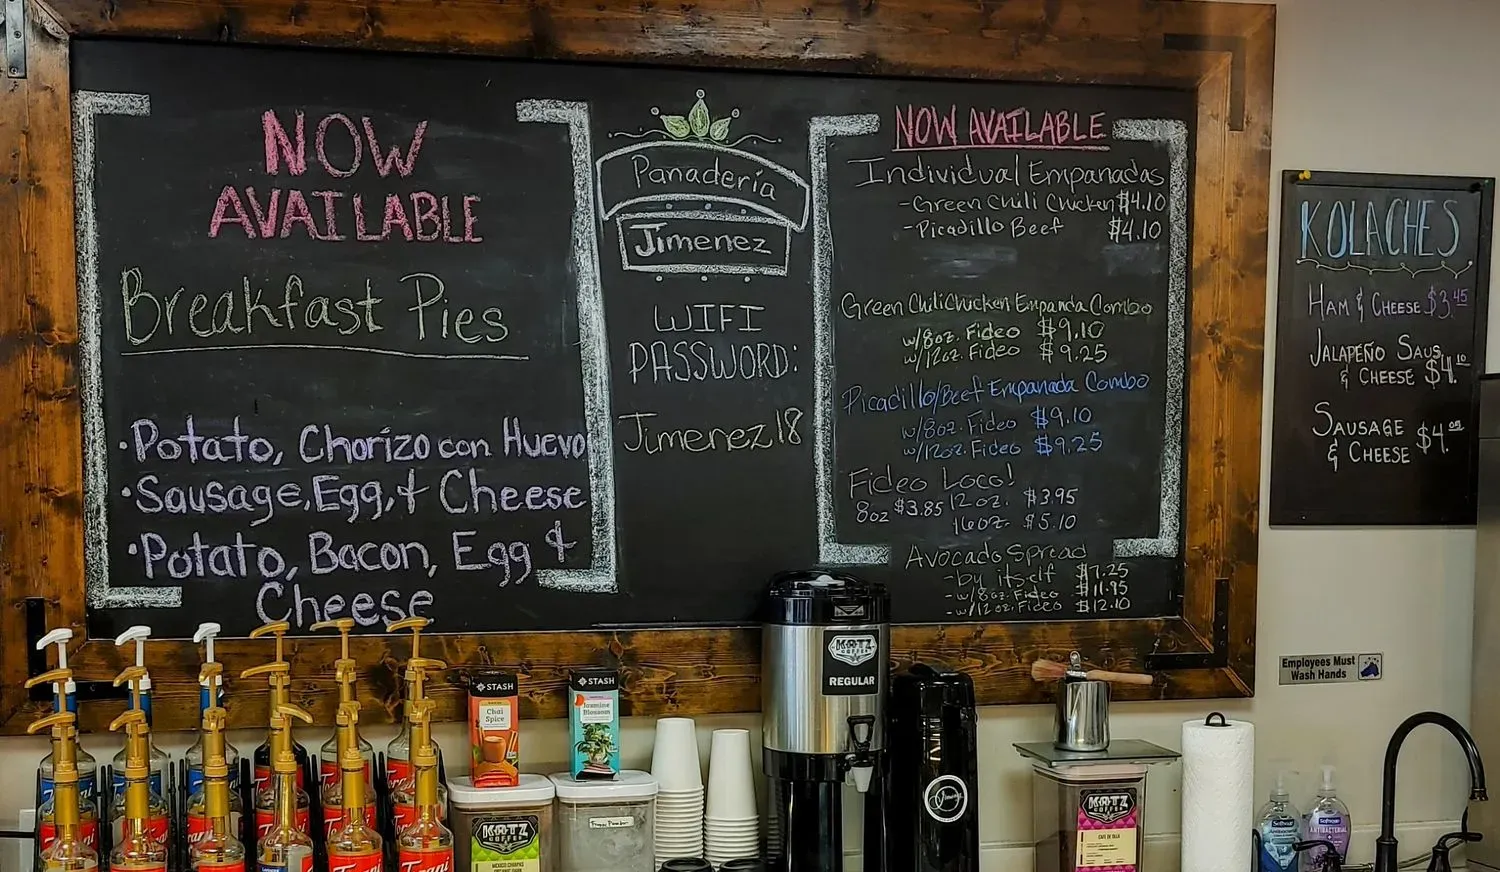 NOW
AVAILABLE
Breakfast Pies
• Potato, Chorizo con Huevo
• Sausage, Egg, & Cheese
• Potato, Bacon, Egg &
Cheese
Panadería
Jimenez
WIFI
PASSWORD:
Jimenez18
NOW AVAILABLE
Individual Empanadas
- Green Chili Chicken $4.10
- Picadillo Beef $4.10
Green Chili Chicken Empanda Combo
w/8oz. Fideo $9.10
w/12oz. Fideo $9.25
Picadillo/Beef Empanada Combo
w/8oz. Fideo $9.10
w/12oz. Fideo $9.25
Fideo Loco!
8oz $3.85 12oz. $3.95
16oz. $5.10
Avocado Spread
- by itself $7.25
- w/8oz. Fideo $11.95
- w/12oz. Fideo $12.10
KOLACHES
HAM & CHEESE $3.45
JALAPEÑO SAUS.
& CHEESE $4.10
SAUSAGE
& CHEESE $4.05
Employees Must
Wash Hands
STASH
Chai
Spice
STASH
Jasmine
Blossom
KATZ
COFFEE
REGULAR
KATZ
COFFEE
MEXICO CHIAPAS
ORGANIC DARK
KATZ
COFFEE
CAFE DE OLLA
Softsoap
Softsoap
ANTIBACTERIAL
Torani
Torani
Torani